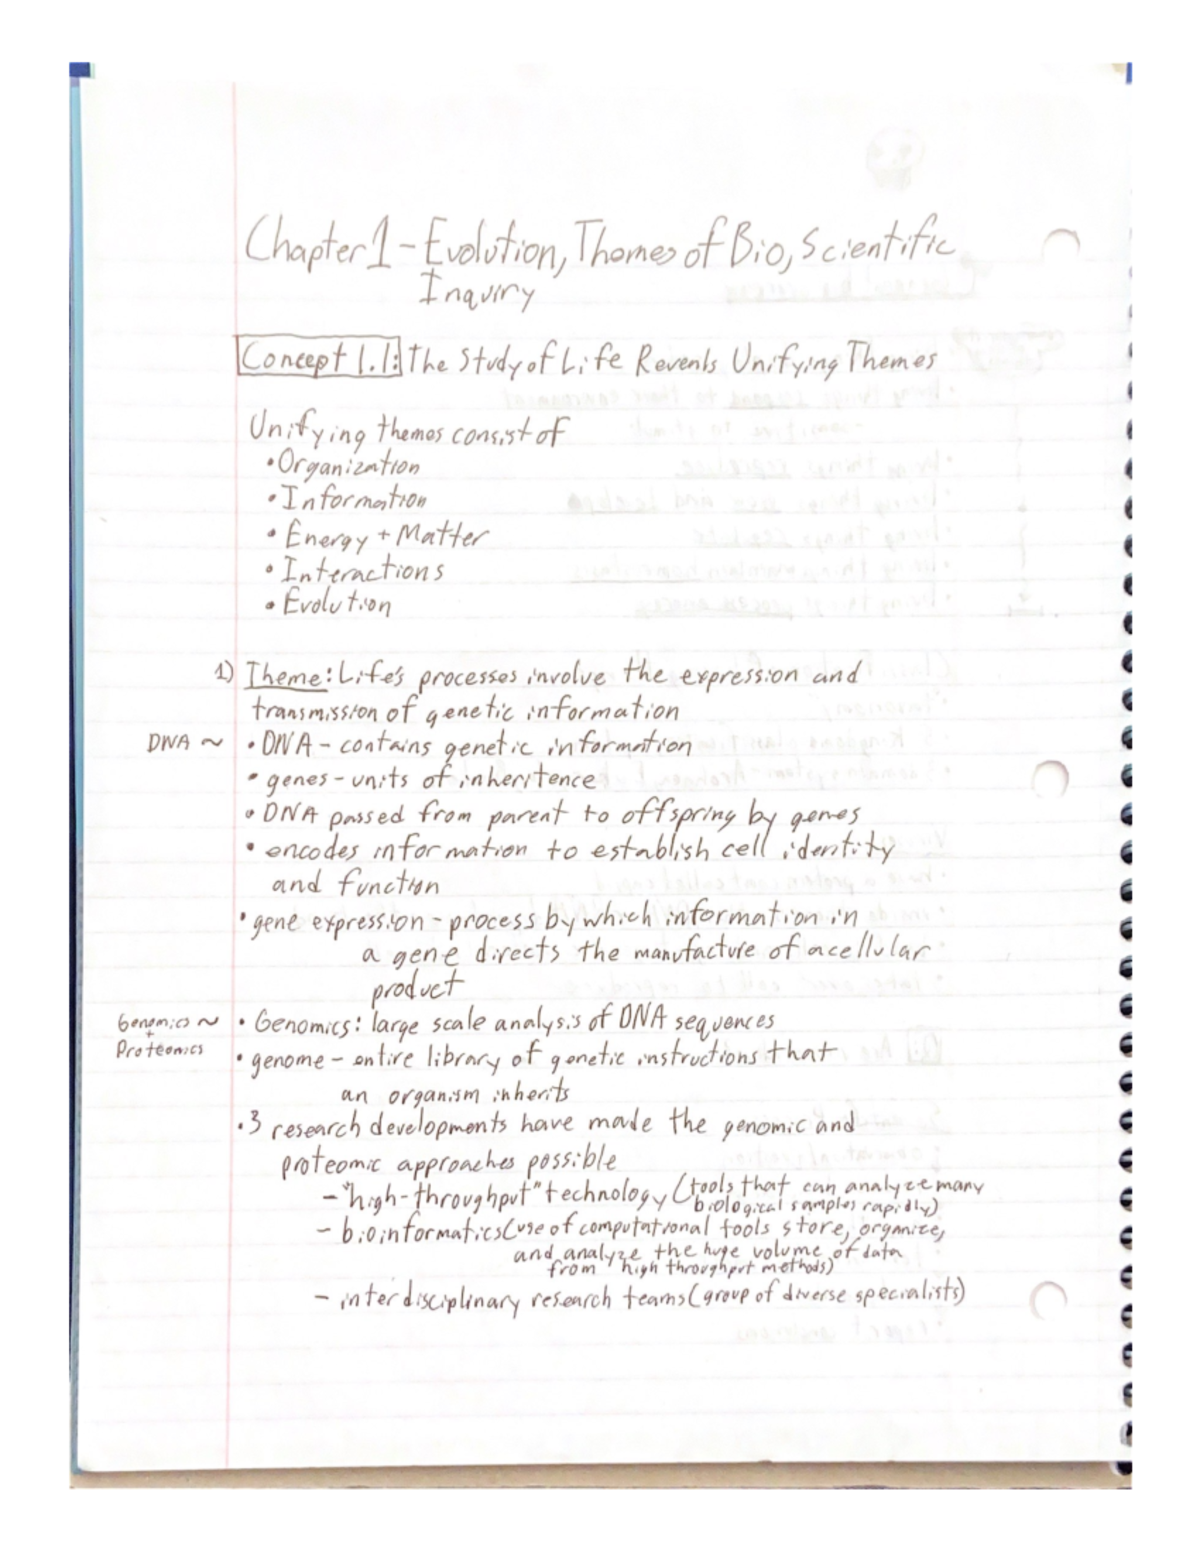 Chapter 1 - Evolution, Themes of Bio, Scientific
Inquiry
Concept 1.1: The Study of Life Reveals Unifying Themes
Unifying themes consist of
• Organization
• Information
• Energy + Matter
• Interactions
• Evolution
1) Theme: Life's processes involve the expression and
transmission of genetic information
DNA ~ • DNA - contains genetic information
• genes - units of inheritence
• DNA passed from parent to offspring by genes
• encodes information to establish cell identity
and function
• gene expression - process by which information in
a gene directs the manufacture of a cellular
product
Genomics ~ • Genomics: large scale analysis of DNA sequences
+
Proteomics
• genome - entire library of genetic instructions that
an organism inherits
• 3 research developments have made the genomic and
proteomic approaches possible
- "high-throughput" technology (tools that can analyze many
biological samples rapidly)
- bioinformatics (use of computational tools store, organize,
and analyze the huge volume of data
from high throughput methods)
- interdisciplinary research teams (group of diverse specialists)